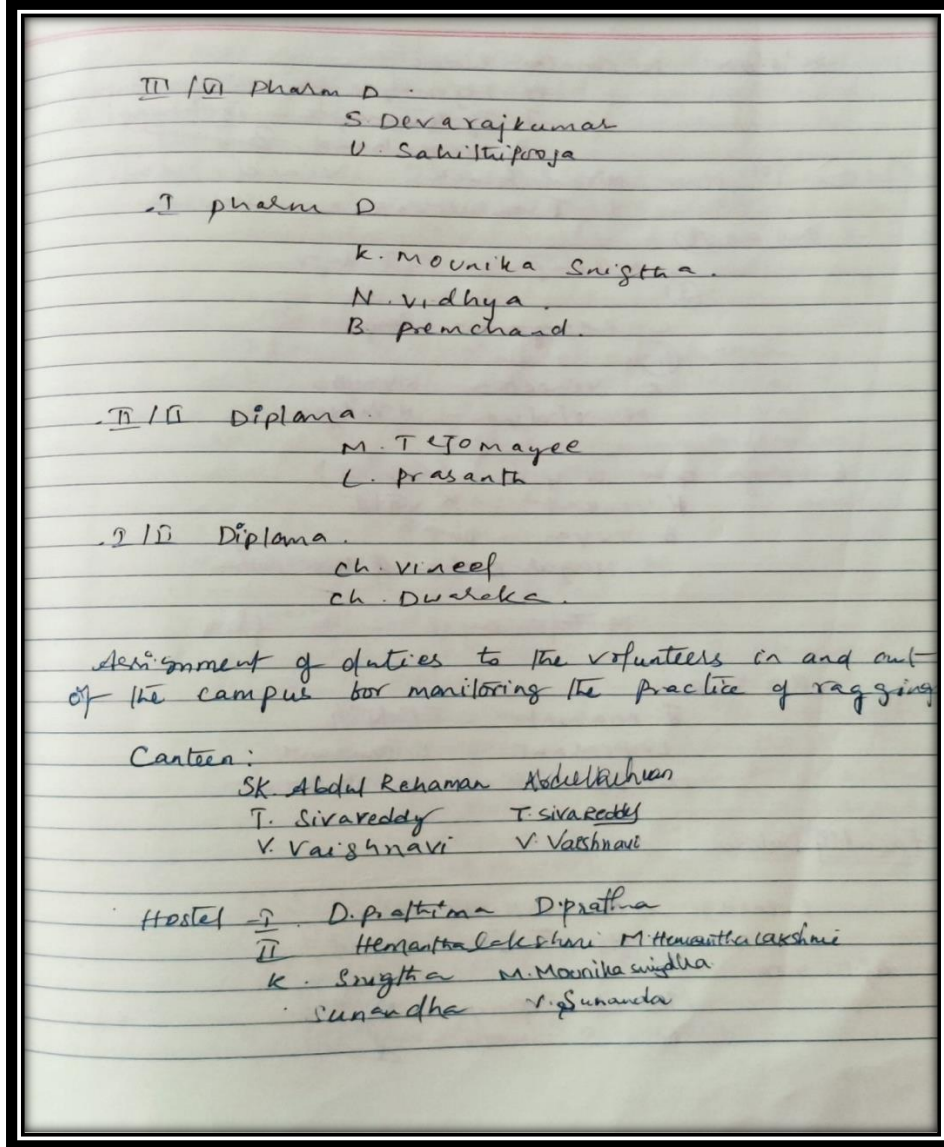 III / VI Pharm D.
S Devarajkumar
U. Sahithipooja
I pharm D
K. Mounika Snigtha.
N. Vidhya.
B. Premchand.
II / II Diploma.
M. Tejomayee
L. Prasanth
I / II Diploma.
Ch. Vineel
Ch. Dwaraka.
Assignment of duties to the volunteers in and out
of the campus for monitoring the practice of ragging
Canteen:
SK. Abdul Rehaman
T. Sivareddy T. SivaReddy
V. Vaishnavi V. Vaishnavi
Hostel - I D. Prathima D. Prathma
II Hemantha lakshmi M. Hemantha lakshmi
K. Snigtha M. Mounika snigdha
Sunandha V. Sunanda